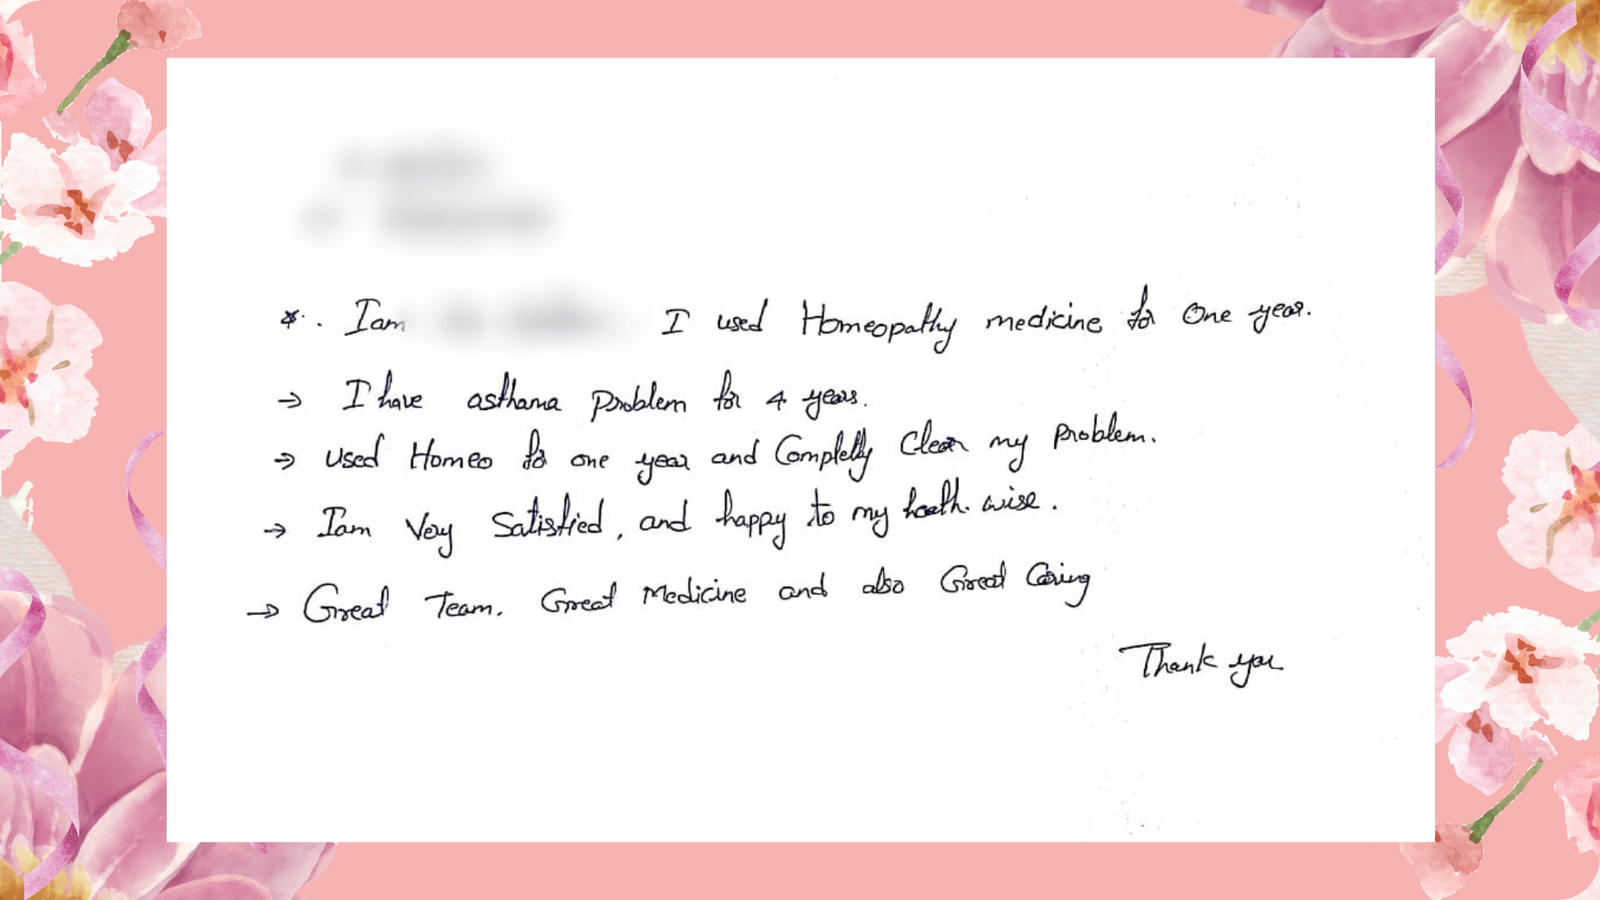 * . Iam I used Homeopathy medicine for One year.
→ I have asthama problem for 4 years.
→ used Homeo for one year and Completly Clear my problem.
→ Iam Very Satisfied, and happy to my heath. wise.
→ Great Team. Great Medicine and also Great Caring
Thank you